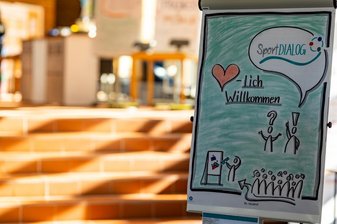 SportDIALOG
-Lich
Willkommen
? !